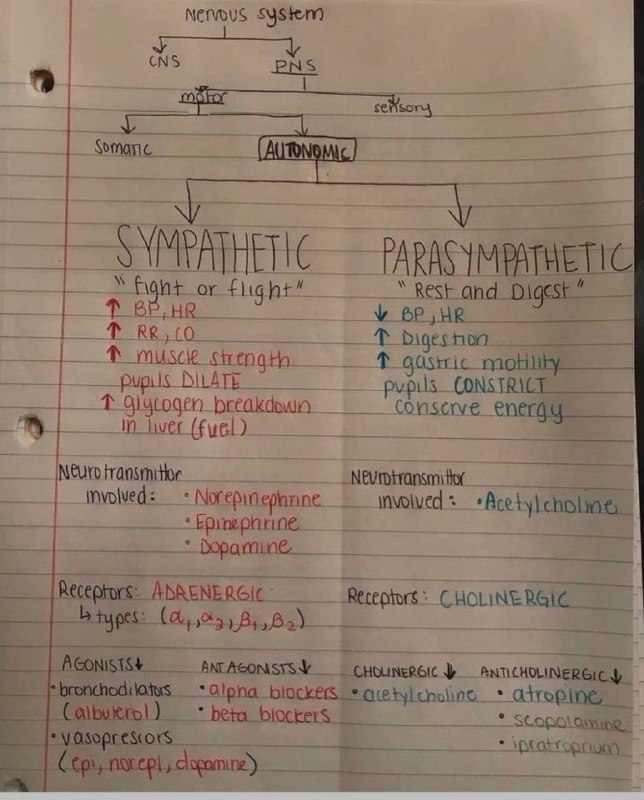 Nervous system
CNS
PNS
motor
sensory
Somatic
AUTONOMIC
SYMPATHETIC
"fight or flight"
↑ BP, HR
↑ RR, CO
↑ muscle strength
pupils DILATE
↑ glycogen breakdown
in liver (fuel)
PARASYMPATHETIC
"Rest and Digest"
↓ BP, HR
↑ Digestion
↑ gastric motility
pupils CONSTRICT
conserve energy
Neurotransmittor
involved:
• Norepinephrine
• Epinephrine
• Dopamine
Neurotransmittor
involved: • Acetylcholine
Receptors: ADRENERGIC
↳ types: (α₁, α₂, β₁, β₂)
Receptors: CHOLINERGIC
AGONISTS↓
• bronchodilators
(albuterol)
• vasopressors
(epi, norepi, dopamine)
ANTAGONISTS↓
• alpha blockers
• beta blockers
CHOLINERGIC↓
• acetylcholine
ANTICHOLINERGIC↓
• atropine
• scopolamine
• ipratroprium